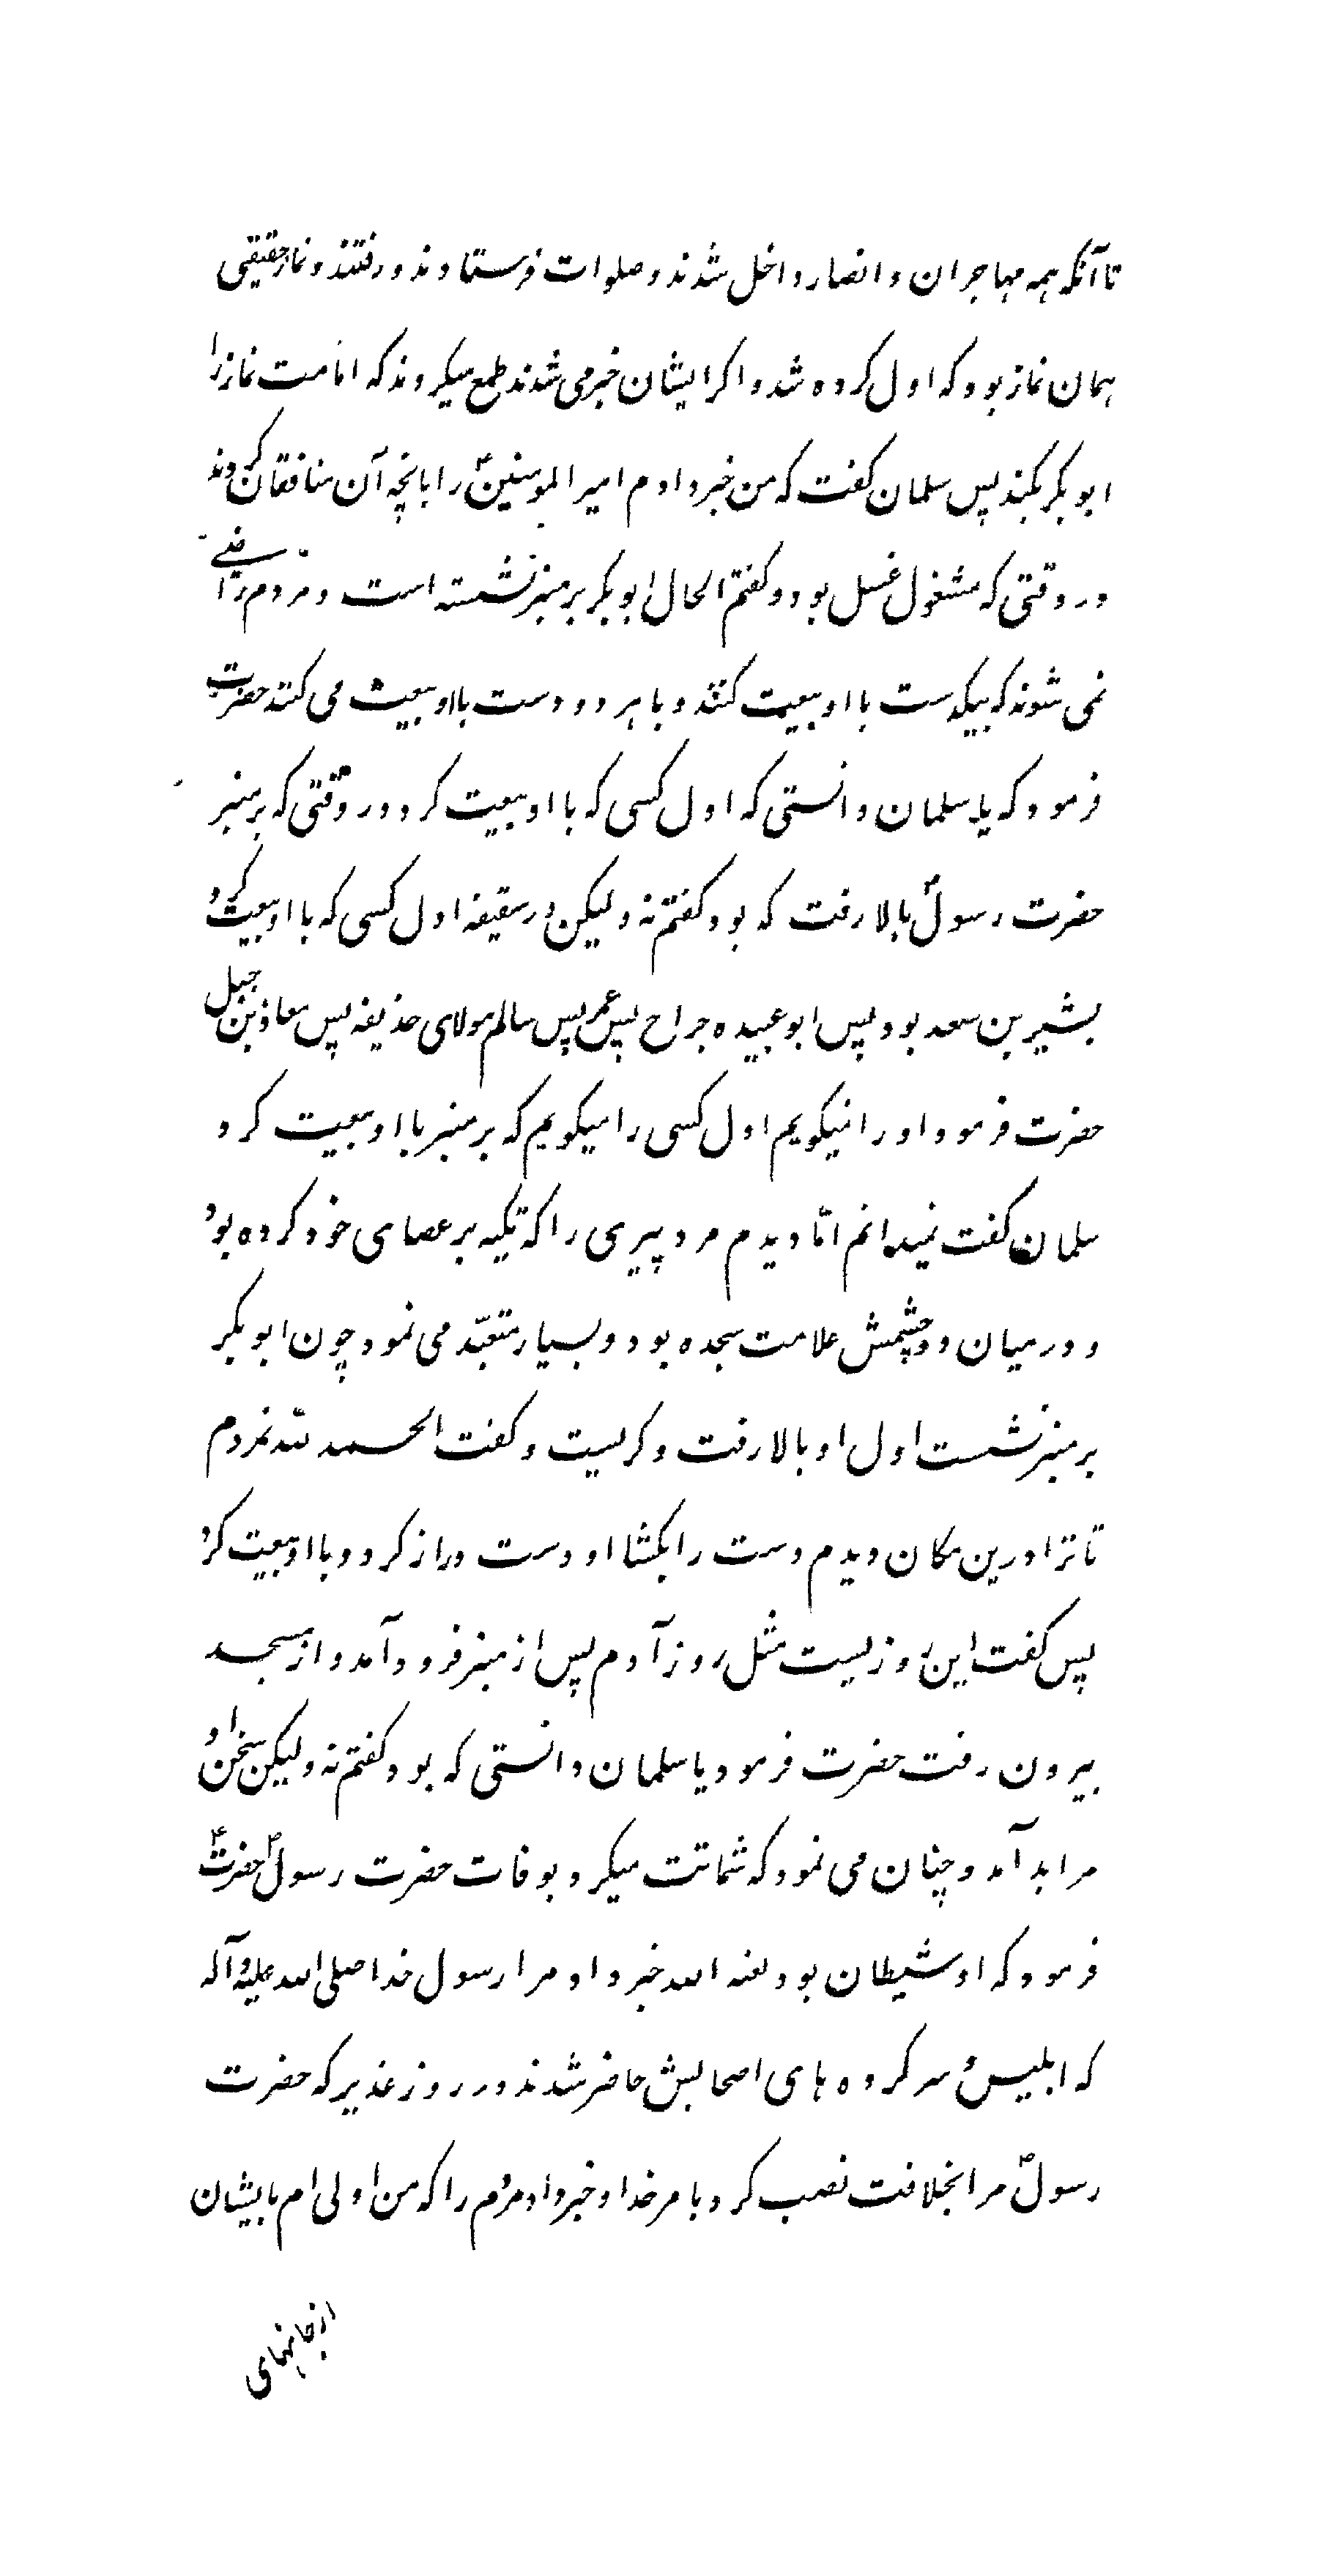 تا آنکه همه مهاجران و انصار داخل شدند و صلوات فرستادند و رفتند و نماز حقیقی
همان نماز بود که اول کرده شد و اکر ایشان خبر می شدند طمع میکردند که امامت نماز را
ابو بکر بکند پس سلمان کفت که من خبر دادم امیر المومنینؑ را بانچه آن منافقان کردند
در وقتی که مشغول غسل بود و کفتم الحال ابو بکر بر منبر نشسته است و مردم راضی
نمی شوند که بیکدست با او بیعت کنند و با هر دو دست با او بیعت می کنند حضرت
فرمود که یا سلمان دانستی که اول کسی که با او بیعت کرد در وقتی که بر منبر
حضرت رسولؐ بالا رفت که بود کفتم نه ولیکن در سقیفه اول کسی که با او بیعت کرد
بشیر بن سعد بود پس ابو عبیده جراح پس عمر پس سالم مولای حذیفه پس معاذ بن جبل
حضرت فرمود او را نمیکویم اول کسی را میکویم که بر منبر با او بیعت کرد
سلمان کفت نمیدانم امّا دیدم مرد پیری را که تکیه بر عصای خود کرده بود
و در میان دو چشمش علامت سجده بود و بسیار متعبّد می نمود چون ابو بکر
بر منبر نشست اول او بالا رفت و کریست و کفت الحمد لله نمردم
تا ترا درین مکان دیدم دست را بکشا او دست دراز کرد و با او بیعت کرد
پس کفت این روزیست مثل روز آدم پس از منبر فرود آمد و از مسجد
بیرون رفت حضرت فرمود یا سلمان دانستی که بود کفتم نه ولیکن سخن او
مرا بد آمد و چنان می نمود که شماتت میکرد بوفات حضرت رسولؐ حضرتؑ
فرمود که او شیطان بود لعنه الله خبر داد مرا رسول خدا صلی الله علیه و آله
که ابلیس و سر کرده های اصحابش حاضر شدند در روز غدیر که حضرت
رسولؐ مرا بخلافت نصب کرد بامر خدا و خبر داد مردم را که من اولی ام بایشان
از جانهای